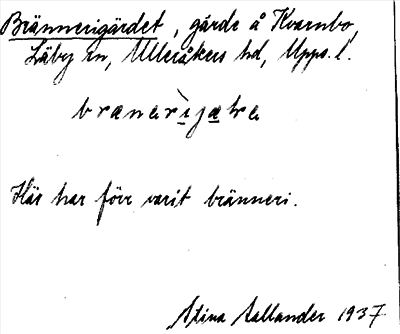 Brännerigärdet, gärde å Kvarnbo,
Läby sn, Ulleråkers hd, Upps. l.
brænerìjæḷṛa
Här har förr varit bränneri.
Stina Aallander 1937